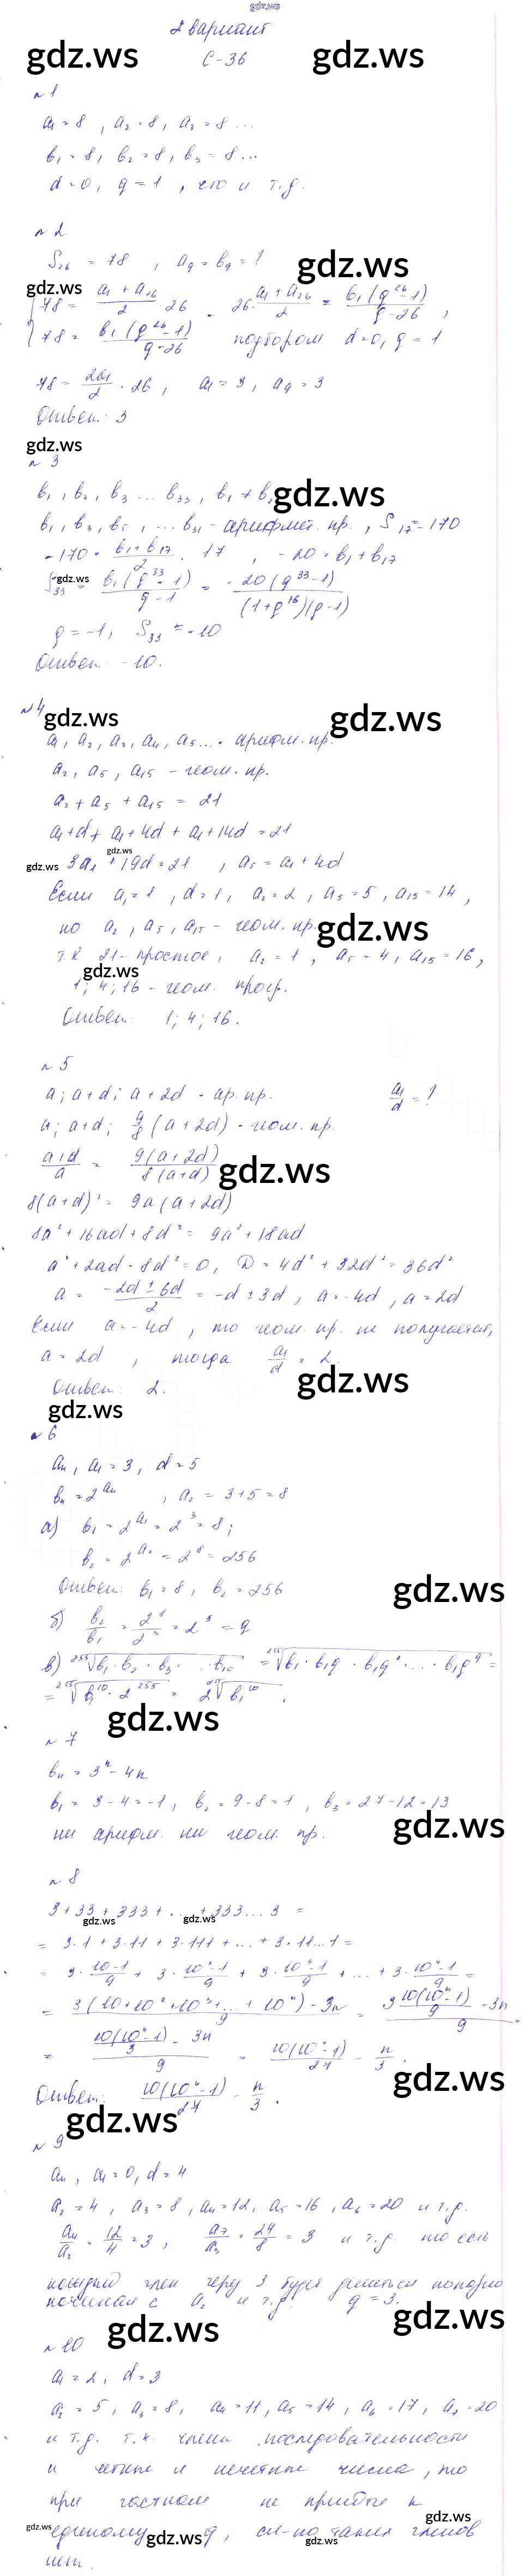 gdz.ws
2 вариант
gdz.ws gdz.ws
С-36
n 1
a₁ = 8 , a₂ = 8, a₃ = 8 ...
b₁ = 8, b₂ = 8, b₃ = 8 ...
d = 0, q = 1 , это и т.д.
n 2
S₂₆ = 78 , a₉ = b₉ = ?
gdz.ws
gdz.ws
78 = (a₁ + a₂₆)/2 · 26 = 26 · (a₁ + a₂₆)/2 = b₁(q²⁶-1)/(q-26) ,
78 = b₁(q²⁶-1)/(q-26) подбором d=0, q = 1
78 = 2a₁/2 · 26 , a₁ = 3 , a₉ = 3
Ответ: 3
gdz.ws
n 3
b₁ , b₂ , b₃ ... b₃₃ , b₁ + b₂
gdz.ws
b₁ , b₃ , b₅ , ... b₃₁ - арифмет. пр. , S₁₇ = -170
-170 = (b₁ + b₁₇)/2 · 17 , -20 = b₁ + b₁₇
gdz.ws
S₃₃ = b₁(q³³-1)/(q-1) = -20(q³³-1)/((1+q¹⁶)(q-1))
q = -1, S₃₃ = -10
Ответ: -10.
n 4
gdz.ws gdz.ws
a₁ , a₂ , a₃ , a₄ , a₅ ... - арифм. пр.
a₂ , a₅ , a₁₅ - геом. пр.
a₂ + a₅ + a₁₅ = 21
a₁+d + a₁ + 4d + a₁ + 14d = 21
gdz.ws
gdz.ws
3a₁ + 19d = 21 , a₅ = a₁ + 4d
Если a₁ = 1 , d = 1 , a₂ = 2 , a₅ = 5 , a₁₅ = 14 ,
но a₂ , a₅ , a₁₅ - геом. пр.
gdz.ws
т.к 21 - простое , a₂ = 1 , a₅ = 4 , a₁₅ = 16 ,
gdz.ws
1; 4; 16 - геом. прогр.
Ответ: 1; 4; 16.
n 5
a; a+d; a + 2d - ар. пр. a₁/d = ?
a; a+d; 9/8 (a + 2d) - геом. пр.
(a+d)/a = 9(a+2d)/8(a+d)
gdz.ws
8(a+d)² = 9a(a+2d)
8a² + 16ad + 8d² = 9a² + 18ad
a² + 2ad - 8d² = 0 , D = 4d² + 32d² = 36d²
a = (-2d ± 6d)/2 = -d ± 3d , a = -4d , a = 2d
Если a = -4d , то геом. пр. не получается,
a = 2d , тогда a₁/d = 2.
gdz.ws
Ответ: 2.
gdz.ws
n 6
aₙ , a₁ = 3 , d = 5
bₙ = 2^aₙ , a₂ = 3+5 = 8
а) b₁ = 2^a₁ = 2³ = 8;
b₂ = 2^a₂ = 2⁸ = 256
gdz.ws
Ответ: b₁ = 8 , b₂ = 256
б) b₂/b₁ = 2⁸/2³ = 2⁵ = q
в) ²⁵⁵√(b₁ · b₂ · b₃ · ... b₁₀) = ²⁵⁵√(b₁ · b₁q · b₁q² · ... · b₁q⁹) =
= ²⁵⁵√(b₁¹⁰ · 2²⁵⁵) = 2 ²⁵⁵√b₁¹⁰ .
gdz.ws
n 7
bₙ = 3ⁿ - 4n
b₁ = 3-4 = -1 , b₂ = 9-8 = 1 , b₃ = 27-12 = 13
gdz.ws
ни арифм. ни геом. пр.
n 8
3 + 33 + 333 + ... + 333...3 =
gdz.ws gdz.ws
= 3·1 + 3·11 + 3·111 + ... + 3·11...1 =
= 3 · (10-1)/9 + 3 · (10²-1)/9 + 3 · (10³-1)/9 + ... + 3 · (10ⁿ-1)/9 =
= (3(10+10²+10³+...+10ⁿ) - 3n)/9 = (3 · 10(10ⁿ-1)/9 - 3n)/9 =
= (10(10ⁿ-1)/3 - 3n)/9 = 10(10ⁿ-1)/27 - n/3 .
gdz.ws
Ответ: 10(10ⁿ-1)/27 - n/3 .
gdz.ws
n 9
aₙ , a₁ = 0 , d = 4
a₂ = 4 , a₃ = 8 , a₄ = 12 , a₅ = 16 , a₆ = 20 и т.д.
a₄/a₂ = 12/4 = 3 , a₇/a₃ = 24/8 = 3 и т.д. то есть
каждый член через 3 будет делиться попарно
начиная с a₂ и т.д. q = 3.
gdz.ws gdz.ws
n 10
a₁ = 2 , d = 3
a₂ = 5 , a₃ = 8 , a₄ = 11 , a₅ = 14 , a₆ = 17 , a₇ = 20
и т.д. т.к. члены последовательности
и четные и нечетные числа , то
при частном не придёте к
gdz.ws
gdz.ws gdz.ws gdz.ws
единому q , сл-но таких членов
нет.